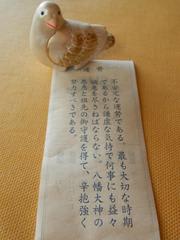 運勢
不安定な運勢である。最も大切な時期
であるから謙虚な気持で何事にも益々
誠意を尽さねばならない。八幡大神の
恵みと祖先の御守護を得て、辛抱強く
努力すべきである。